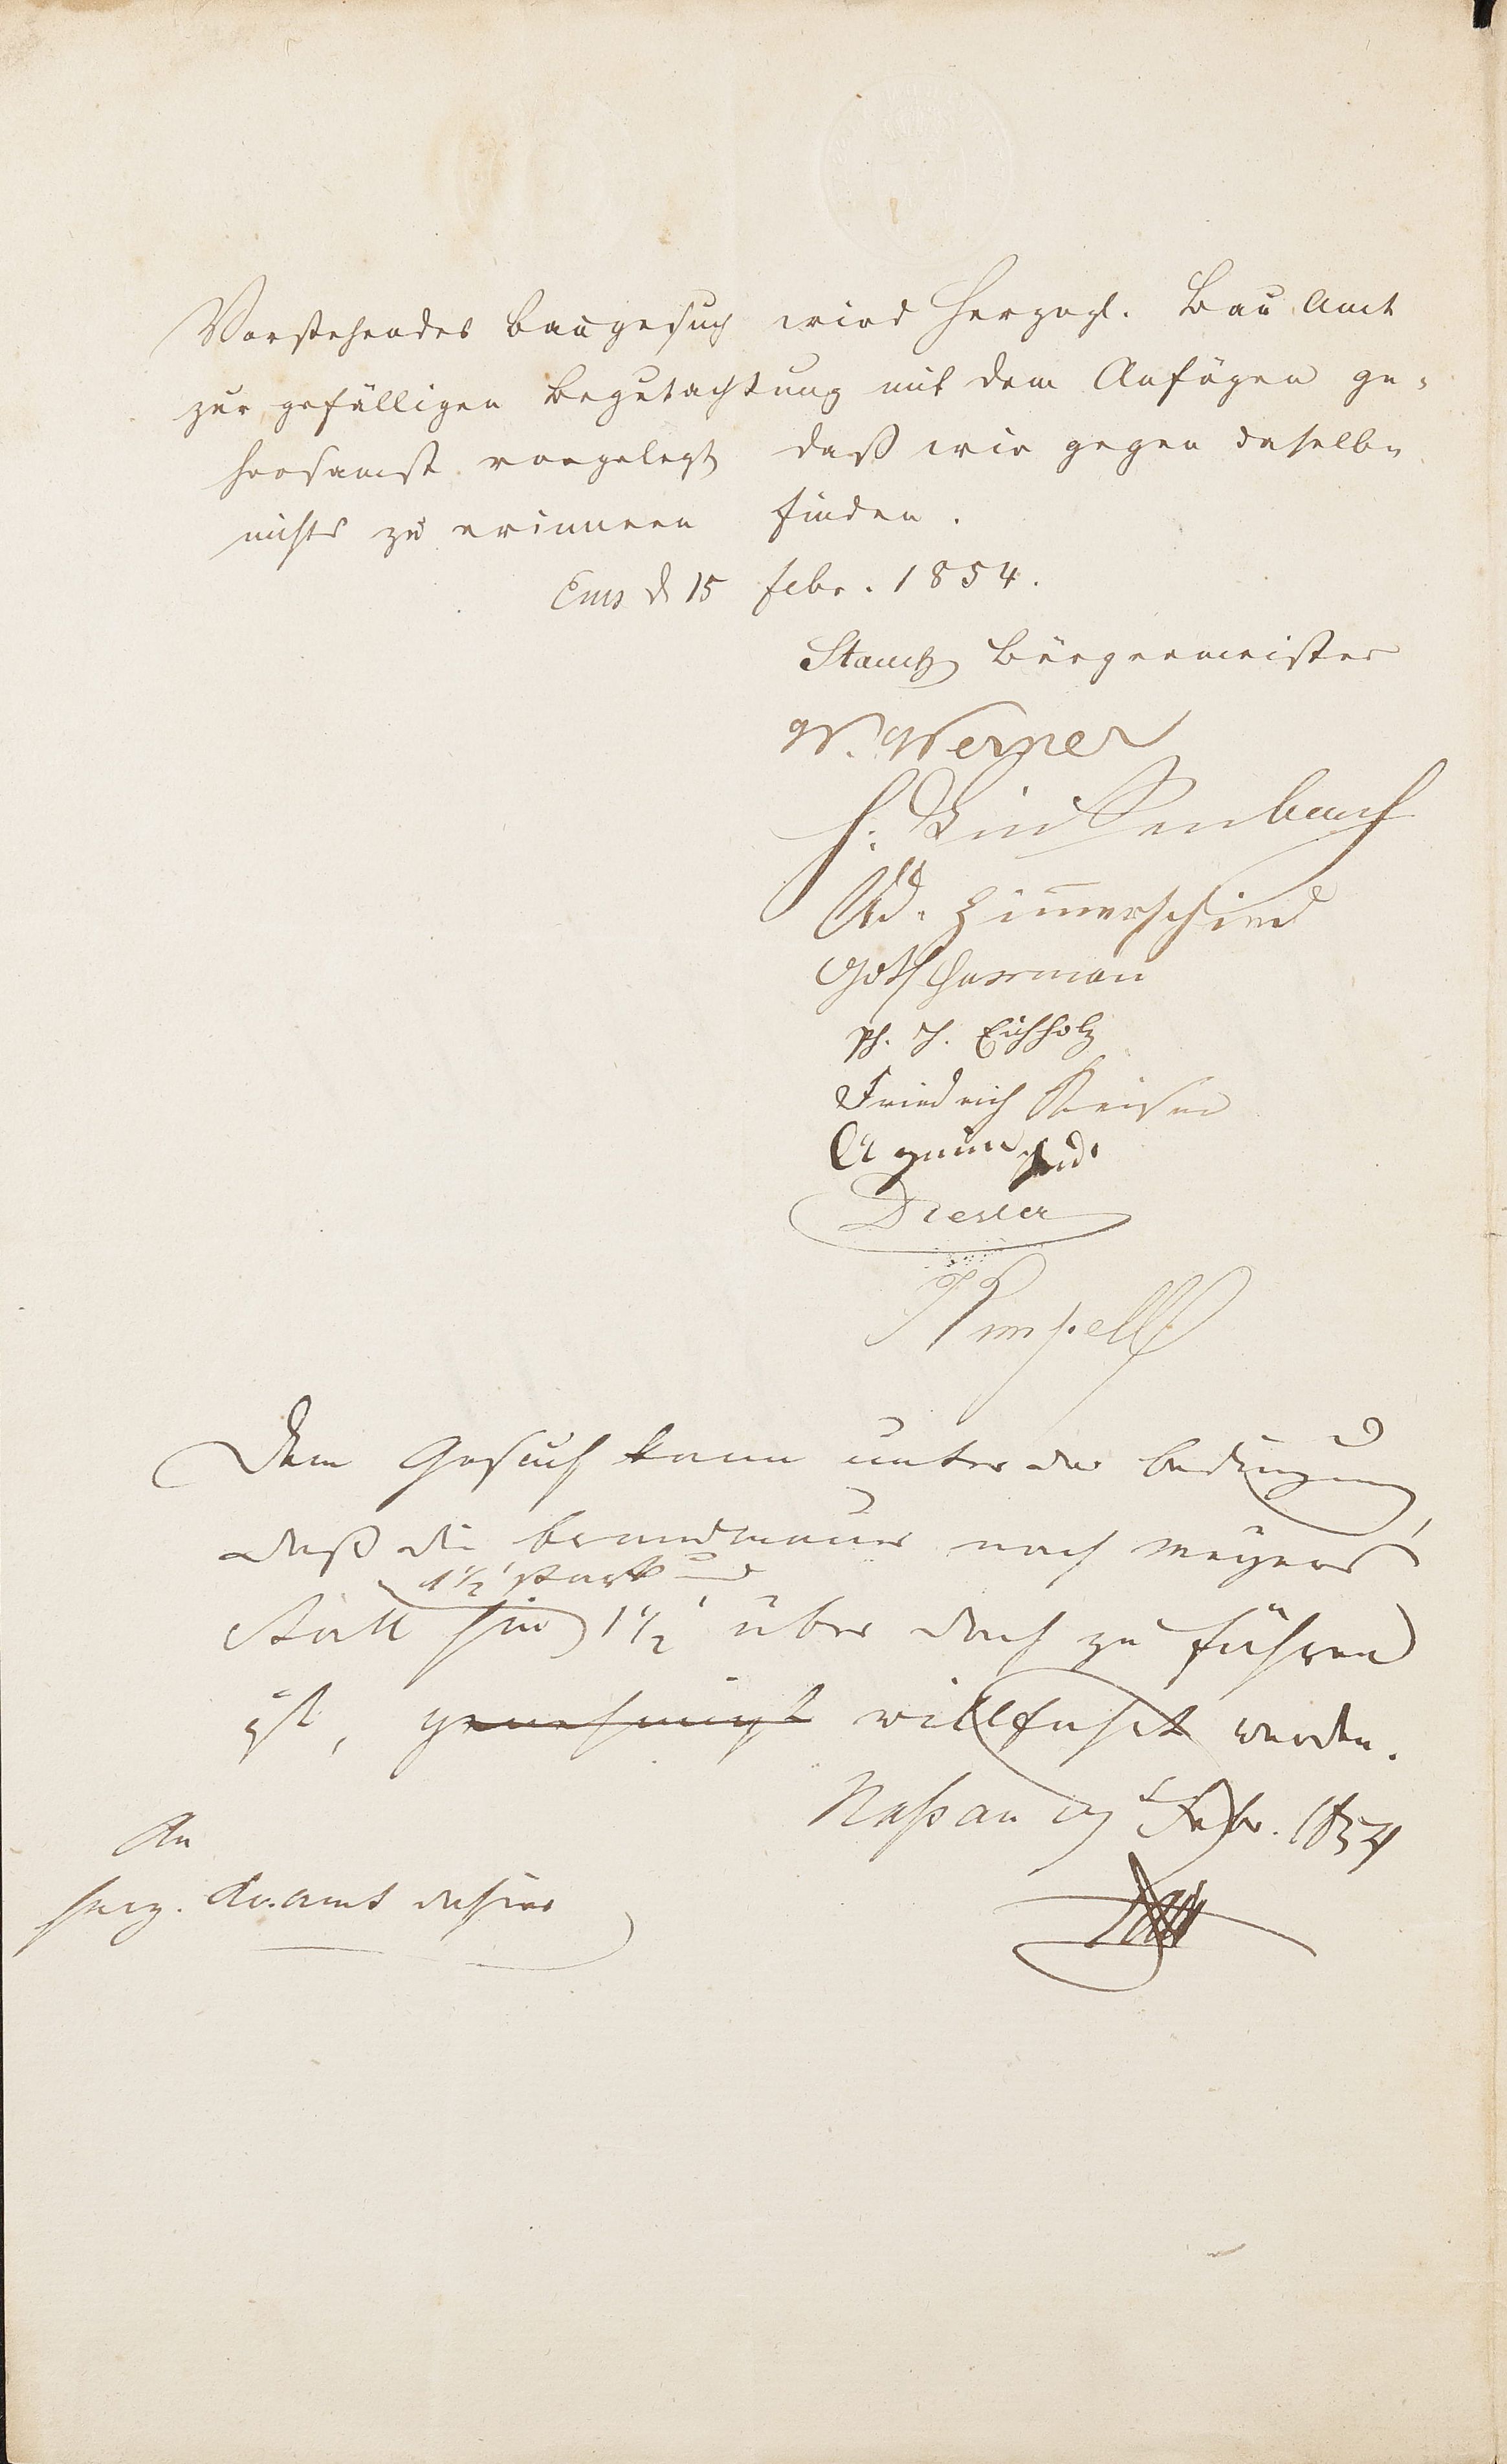 Vorstehendes Baugesuch wird Herzogl. Bau Amt
zur gefälligen Begutachtung mit dem Anfügen ge-
horsamst vorgelegt daß wir gegen daselbe
nichts zu erinnern finden.
Ems d 15 Febr. 1854.
Bürgermeister
W. Werner
Ad. Zimmerschied
Ph. J. Eichholz
Friedrich
Dem Gesuch kann unter der Bedingung,
daß die Brandmauer nach Meyers
1½' stark und
Stall hin 1½' über Dach zu führen
ist, genehmigt willfahrt werden.
Nassau Febr. 1854
An
Herz. Amt dahier